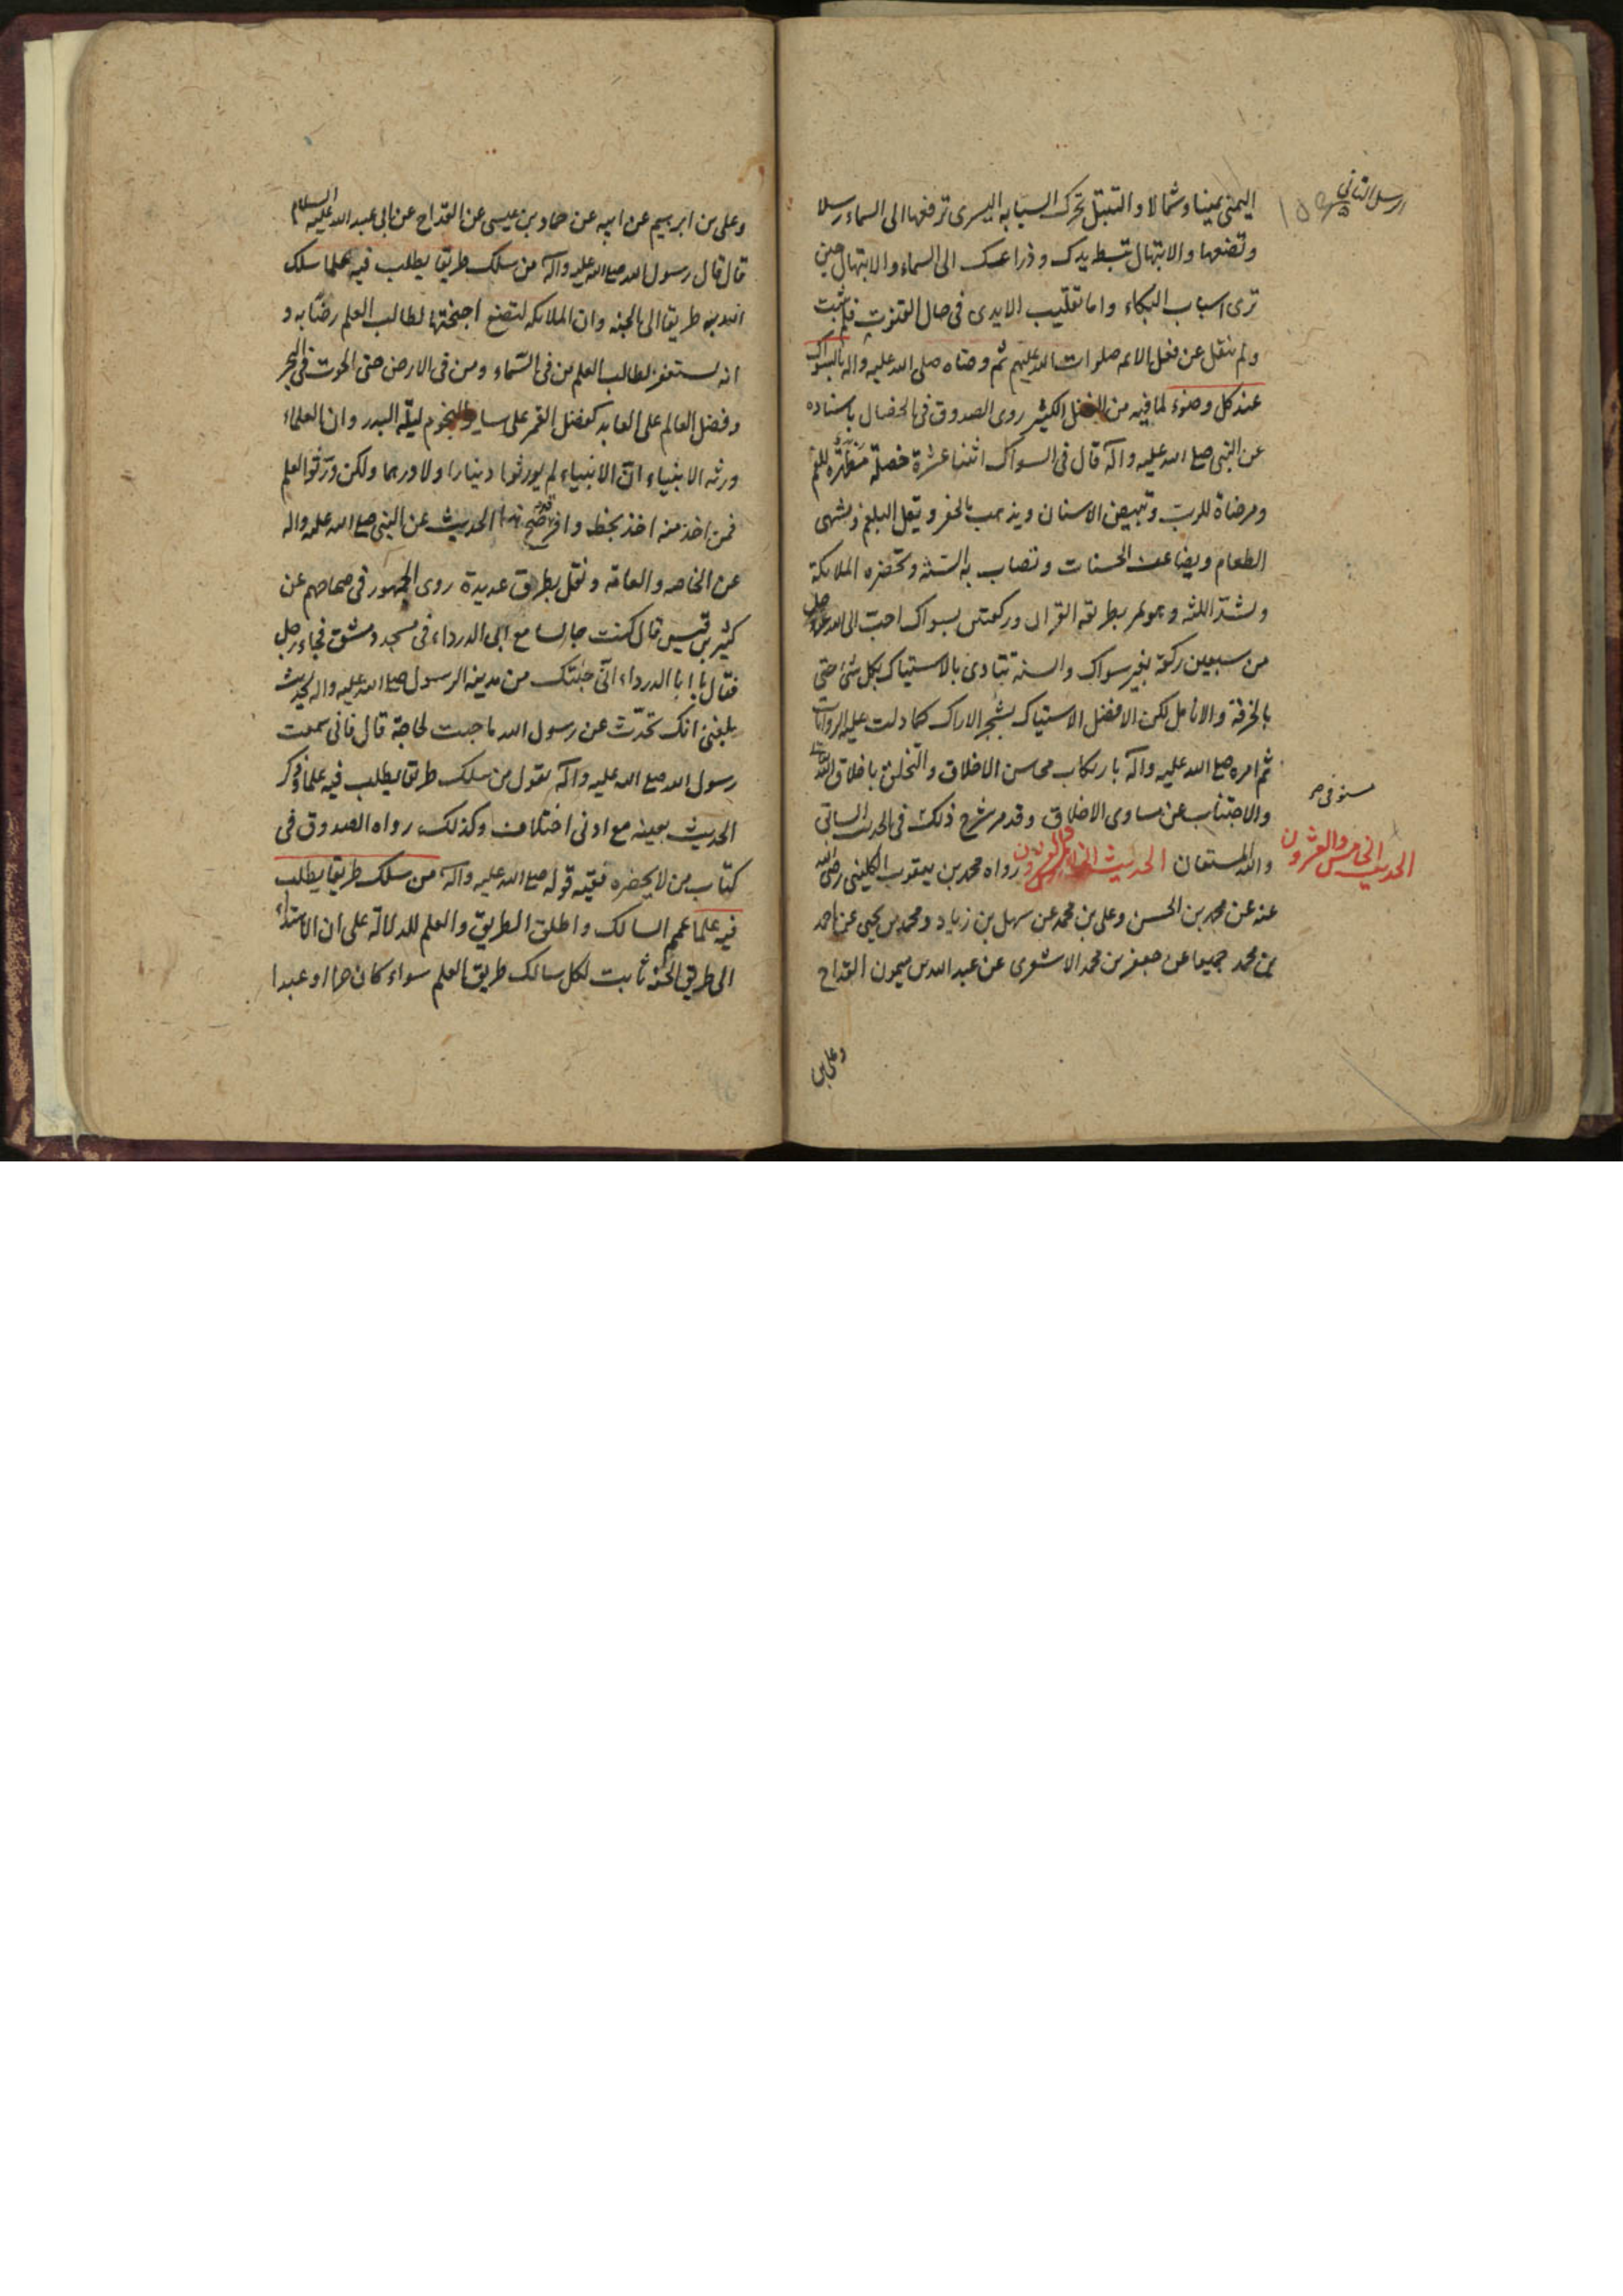 اليمنى يمينا وشمالا والتبتل تحرك السبابه اليسرى ترفعها الى السماء رسلا
وتضعها والابتهال تبسط يدك وذراعك الى السماء والابتهال حين
ترى اسباب البكاء واما تقليب الايدى فى حال القنوت فلم يثبت
ولم ينقل عن فعل الائمه صلوات الله عليهم ثم وصاه صلى الله عليه واله بالسواك
عند كل وضوء لما فيه من الفضل الكثير روى الصدوق فى الخصال باسناده
عن النبى صلع الله عليه وآله قال فى السواك اثنتا عشرة خصلة مطهرة للفم
ومرضاة للرب وتبييض الاسنان ويذهب بالحفر ويقل البلغم ويشهى
الطعام ويضاعف الحسنات وتصاب به السنه وتحضره الملائكة
ويشد اللثه وهو يمر بطريقه القران وركعتين بسواك احب الى الله عز وجل
من سبعين ركعة بغير سواك والسنه تتادى بالاستياك بكل شئ حتى
بالخرقه والانامل لكن الافضل الاستياك بشجر الاراك كما دلت عليه الروايات
ثم امره صلع الله عليه وآله بارتكاب محاسن الاخلاق والتخلق باخلاق الله
والاجتناب عن مساوى الاخلاق وقد مر شرح ذلك فى الحديث السابق
مستوفى ص
والله المستعان الحديث الخامس والعشرون رواه محمد بن يعقوب الكلينى رضى الله
الحديث الخامس والعشرون
عنه عن محمد بن الحسن وعلى بن محمد عن سهل بن زياد ومحمد بن يحيى عن احمد
بن محمد جميعا عن جعفر بن محمد الاشعرى عن عبد الله بن ميمون القداح
وعلى بن
وعلى بن ابرهيم عن ابيه عن حماد بن عيسى عن القداح عن ابى عبد الله عليه السلام
قال قال رسول الله صلع الله عليه وآله من سلك طريقا يطلب فيه علما سلك
الله به طريقا الى الجنه وان الملائكه لتضع اجنحتها لطالب العلم رضا به و
انه يستغفر لطالب العلم من فى السماء ومن فى الارض حتى الحوت فى البحر
وفضل العالم على العابد كفضل القمر على ساير النجوم ليلة البدر وان العلماء
ورثه الانبياء ان الانبياء لم يورثوا دينارا ولا درهما ولكن ورثوا العلم
فمن اخذ منه اخذ بحظ وافر صح هذا الحديث عن النبى صلع الله عليه واله
عن الخاصه والعامه ونقل بطرق عديدة روى الجمهور فى صحاحهم عن
كثير بن قيس قال كنت جالسا مع ابى الدرداء فى مسجد دمشق فجاء رجل
فقال يا ابا الدرداء انى جئتك من مدينه الرسول صلع الله عليه واله لحديث
بلغنى انك تحدث عن رسول الله ما جئت لحاجة قال فانى سمعت
رسول الله صلع الله عليه وآله يقول من سلك طريقا يطلب فيه علما وذكر
الحديث بعينه مع ادنى اختلاف وكذلك رواه الصدوق فى
كتاب من لا يحضره فقيه قوله صلع الله عليه وآله من سلك طريقا يطلب
فيه علما عمم السالك واطلق الطريق والعلم للدلالة على ان الاهتداء
الى طريق الجنه ثابت لكل سالك طريق العلم سواء كان حرا او عبدا